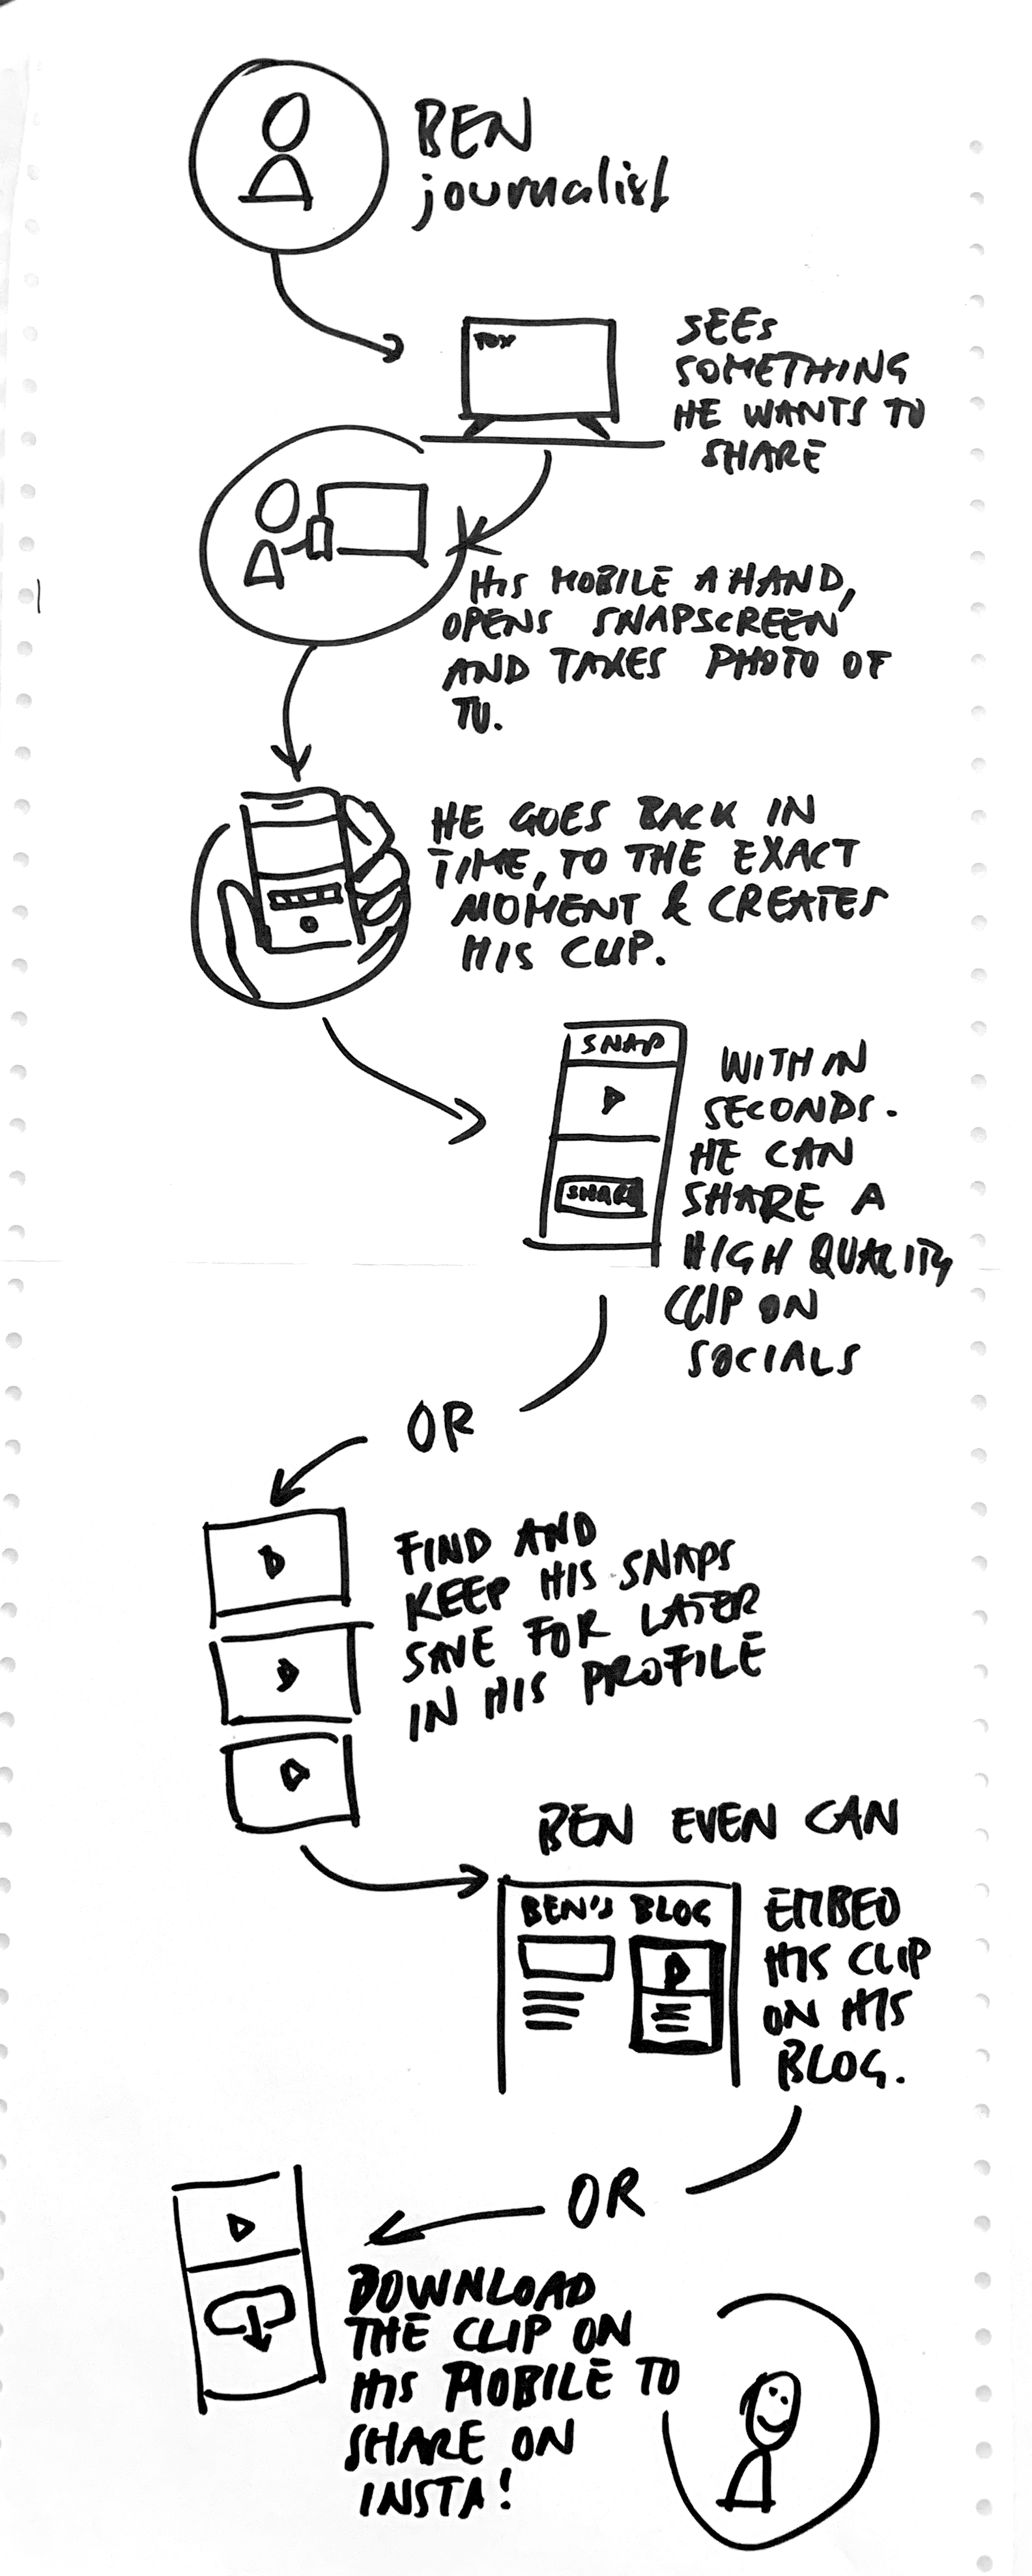 BEN
journalist
FOX
SEES
SOMETHING
HE WANTS TO
SHARE
HIS MOBILE A HAND,
OPENS SNAPSCREEN
AND TAKES PHOTO OF
TV.
HE GOES BACK IN
TIME, TO THE EXACT
MOMENT & CREATES
HIS CLIP.
SNAP
SHARE
WITHIN
SECONDS.
HE CAN
SHARE A
HIGH QUALITY
CLIP ON
SOCIALS
OR
FIND AND
KEEP HIS SNAPS
SAVE FOR LATER
IN HIS PROFILE
BEN EVEN CAN
BEN'S BLOG
EMBED
HIS CLIP
ON HIS
BLOG.
OR
DOWNLOAD
THE CLIP ON
HIS MOBILE TO
SHARE ON
INSTA!